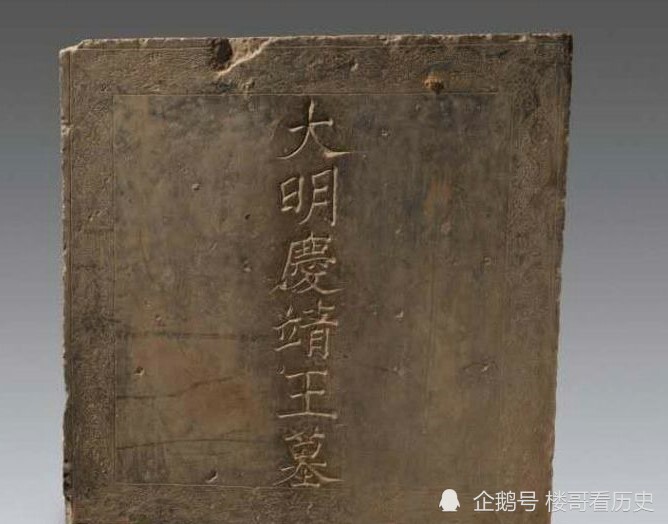 大明慶靖王墓
企鹅号 楼哥看历史